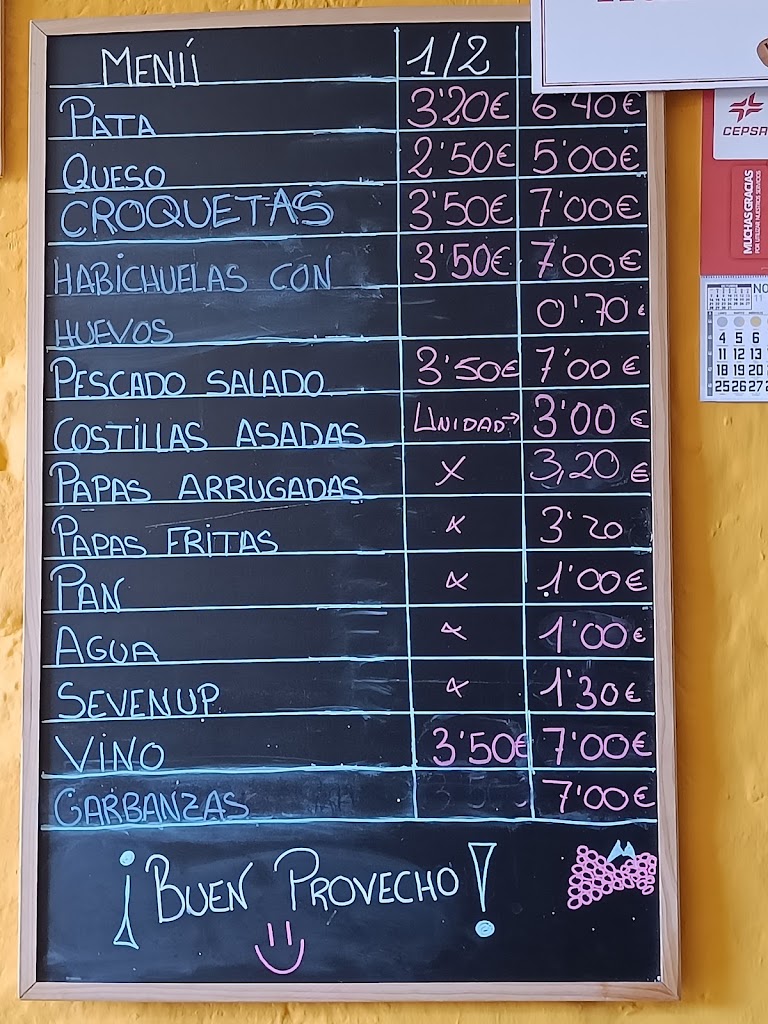 MENÚ 1/2
PATA 3'20€ 6'40€
QUESO 2'50€ 5'00€
CROQUETAS 3'50€ 7'00€
HABICHUELAS CON 3'50€ 7'00€
HUEVOS 0'70€
PESCADO SALADO 3'50€ 7'00€
COSTILLAS ASADAS UNIDAD→ 3'00€
PAPAS ARRUGADAS X 3,20€
PAPAS FRITAS X 3'20
PAN X 1'00€
AGUA X 1'00€
SEVENUP X 1'30€
VINO 3'50€ 7'00€
GARBANZAS 7'00€
¡BUEN PROVECHO!
CEPSA
MUCHAS GRACIAS
POR UTILIZAR NUESTROS SERVICIOS
NO
11
4 5 6
11 12 13
18 19 20
25 26 27